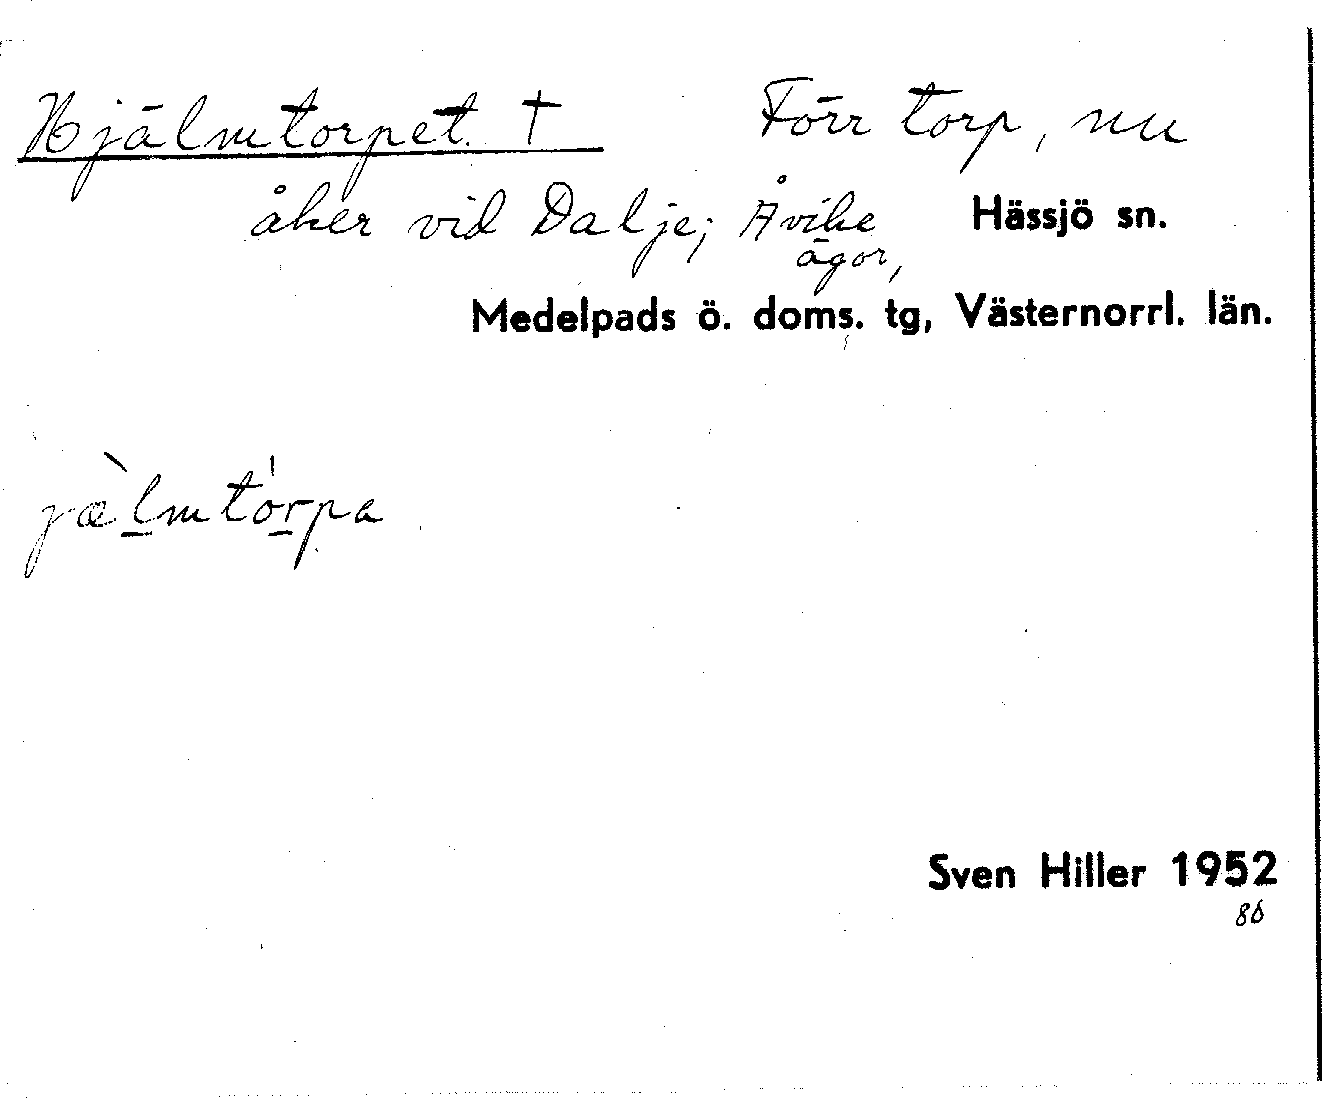 Hjälmtorpet † Förr torp, nu
åker vid Dalje; Åvike Hässjö sn.
ägor,
Medelpads ö. doms. tg, Västernorrl. län.
jæ̀l̲mtór̲pa
Sven Hiller 1952
86